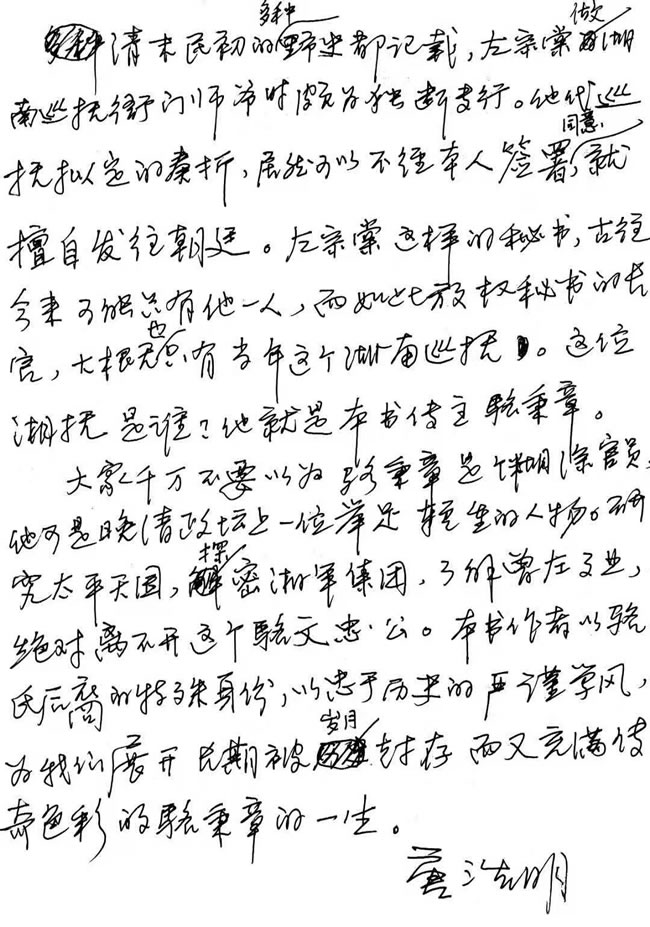 清末民初的多种野史都记载，左宗棠做湖
南巡抚衙门师爷时颇为独断专行。他代巡
抚拟定的奏折，居然可以不经本人签署同意，就
擅自发往朝廷。左宗棠这样的秘书，古往
今来可能只有他一人，而如此放权秘书的长
官，大概也只有当年这个湖南巡抚。这位
湖抚是谁？他就是本书传主骆秉章。
大家千万不要以为骆秉章是个糊涂官员，
他可是晚清政坛上一位举足轻重的人物。研
究太平天国，探密湘军集团，了解曾左事业，
绝对离不开这个骆文忠公。本书作者以骆
氏后裔的特殊身份，以忠于历史的严谨学风，
为我们展开长期被岁月封存而又充满传
奇色彩的骆秉章的一生。
唐浩明